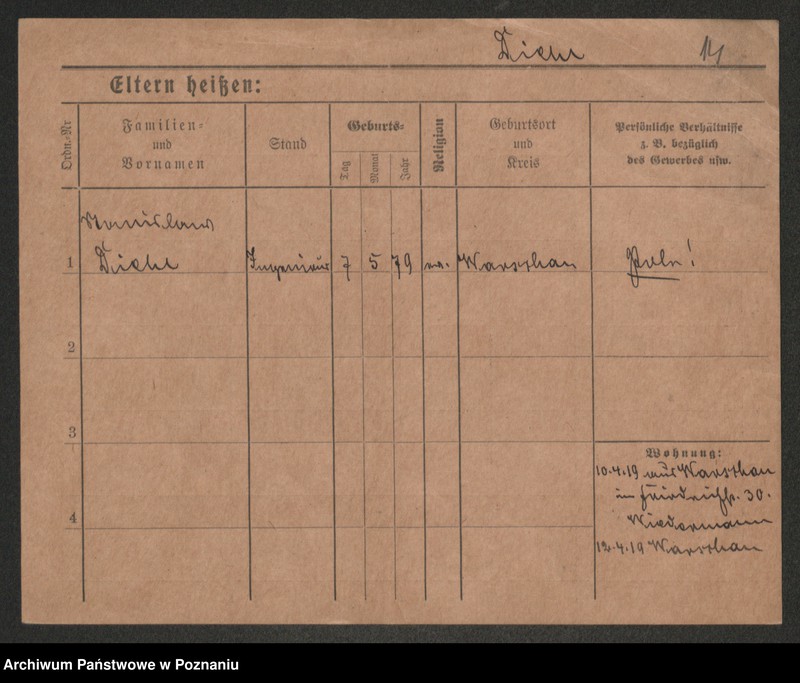 Diehl 14
Eltern heißen:
Ordn.-Nr
Familien-
und
Vornamen
Stand
Geburts-
Tag
Monat
Jahr
Religion
Geburtsort
und
Kreis
Persönliche Verhältnisse
z. B. bezüglich
des Gewerbes usw.
Stanislaus
1 Diehl Ingenieur 7 5 79 Warschau Pole!
2
3
4
Wohnung:
10.4.19 aus Warschau
in Friedrichstr. 30.
Wiedermann
12.4.19 Warschau
Archiwum Państwowe w Poznaniu